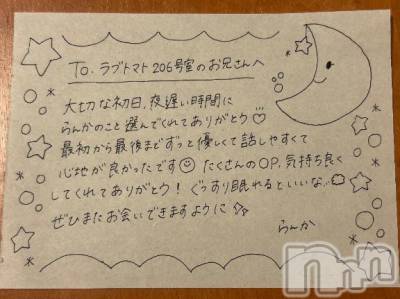 To. ラブトマト206号室のお兄さんへ
大切な初日、夜遅い時間に
らんかのこと選んでくれてありがとウ♡
最初から最後までずっと優しくて話しやすくて
心地が良かったです☺ たくさんのOP、気持ち良く
してくれてありがとウ！ ぐっすり眠れるといいな…
ぜひまたお会いできますように☆
らんか